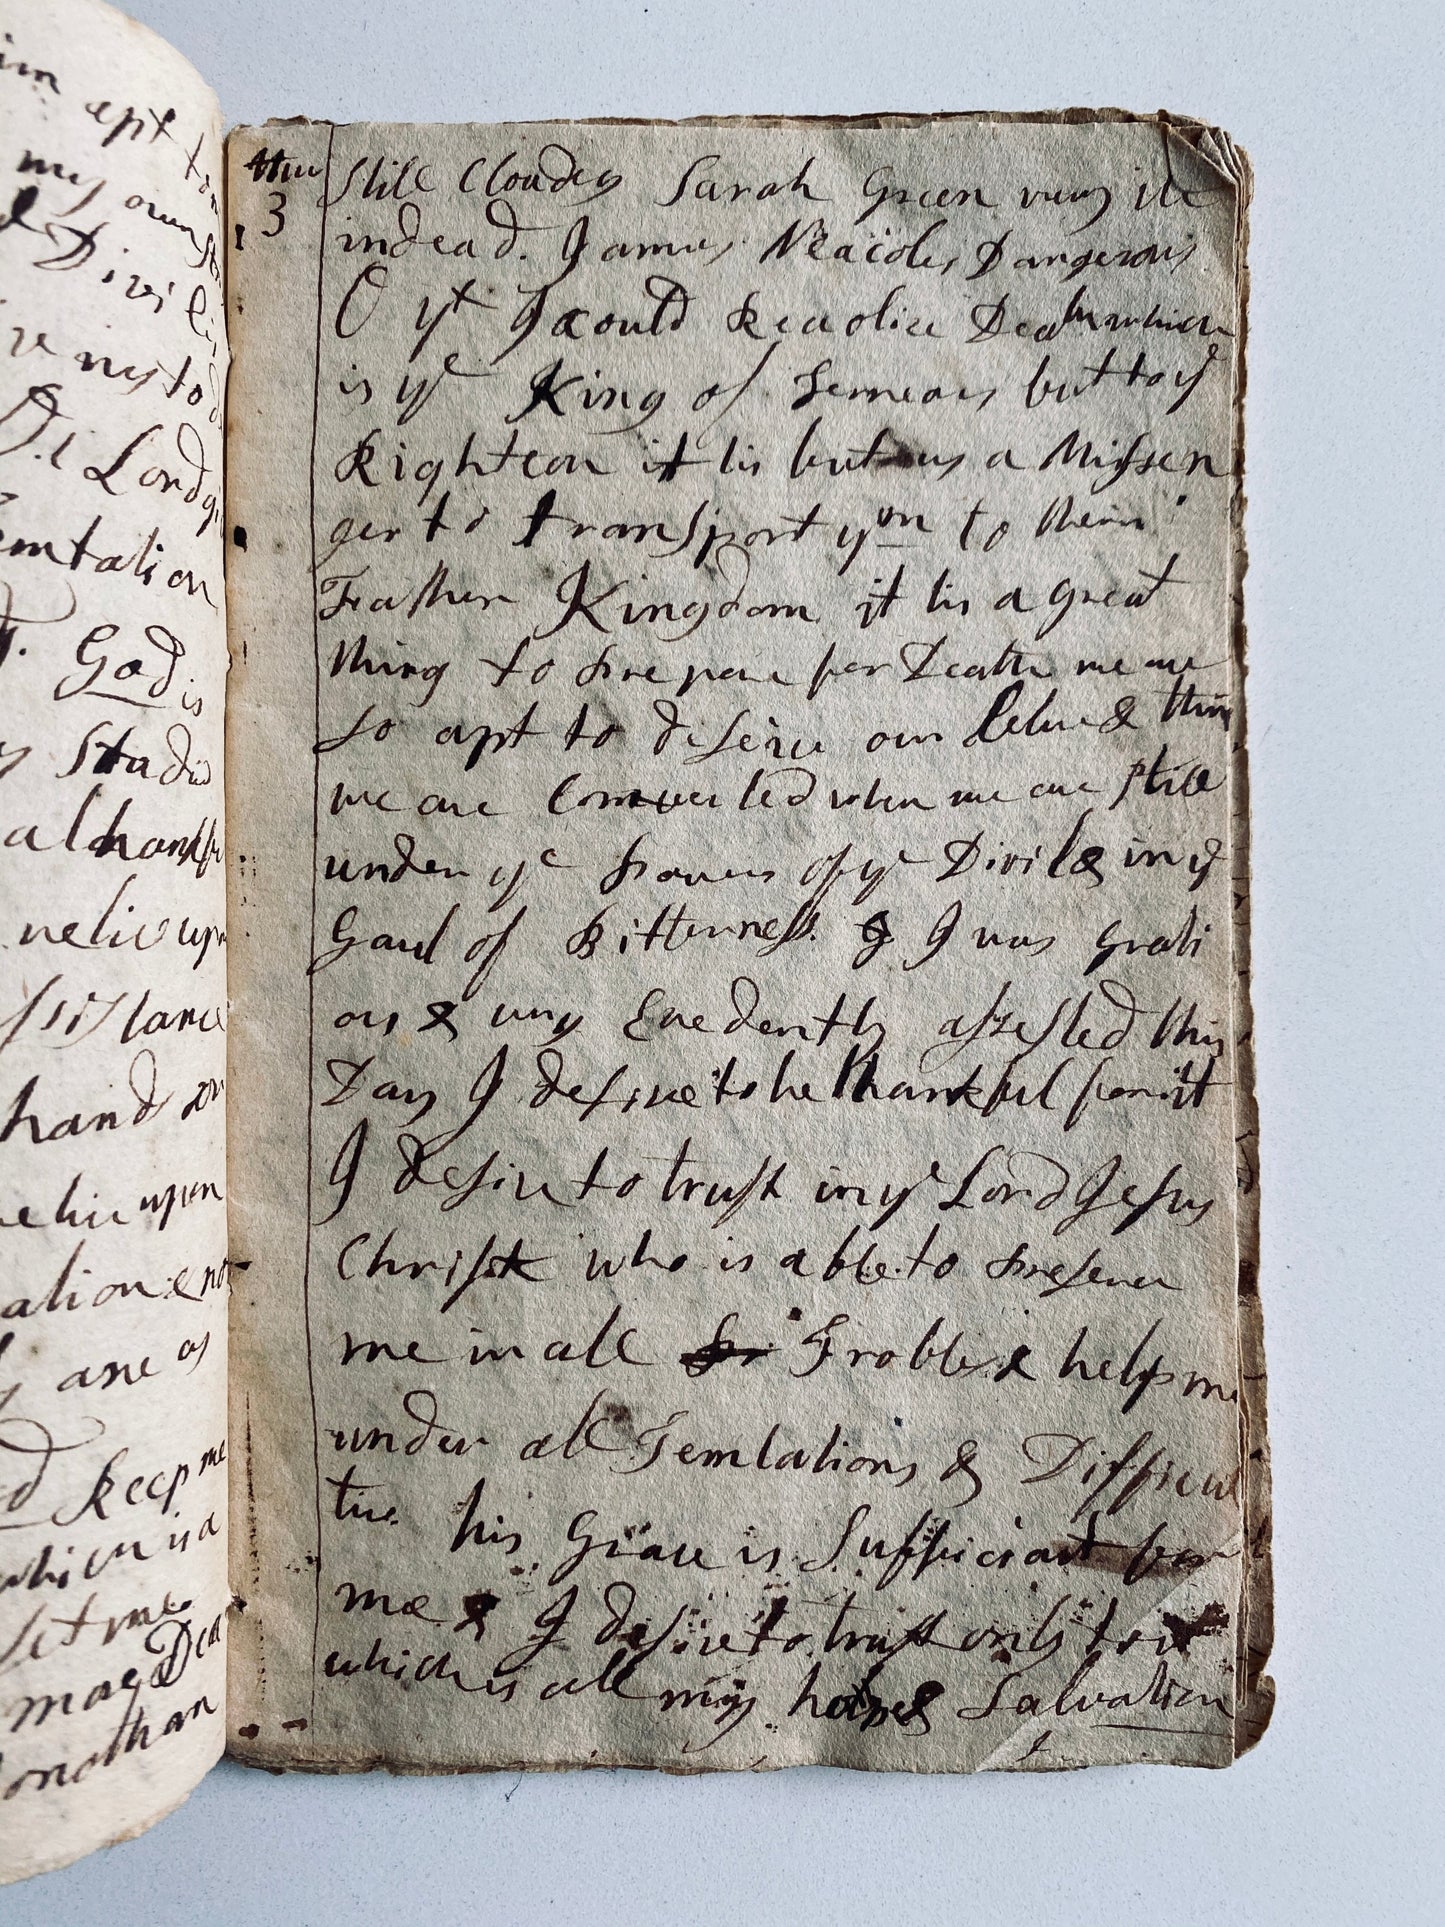 im
apt to
my own
Divi
my to
Lord
mtation
God is
Stadid
a thankf
relie upn
sistance
hand
relie upon
ation & not
are as
keep me
which is a
let me
may Dea
Jonathan
thu
3
Still Cloudey Sarah Green very ill
indead. James Dangerous
O yt I could Reaolice Death which
is ye King of terreors but to ye
Righteou it tis but as a Missen
ger to transport yon to their
Father Kingdom it tis a great
thing to prepare for Death we are
so apt to deseive our selve & think
we are Conveerted when we are still
under ye power of ye Divile & in ye
Gaul of Bitterness. & I was Grati
ous & very Evedently affested this
Day I desire to be thankful for it
I desire to trust in ye Lord Jesus
Christ who is able to preserve
me in all Troble & help me
under all Temtations & Difficul
ties his Grace is Sufficiant for
me & I desire to trust only to it
which is all my hope & Salvation